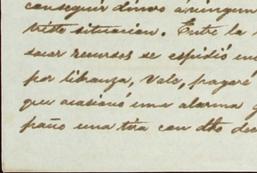 conseguir dinero á ningun
triste situacion. Entre la
sacar recursos se espidió un
por libranza, vale, pagaré
que ocasionó una alarma g
paño una tira con dho dec